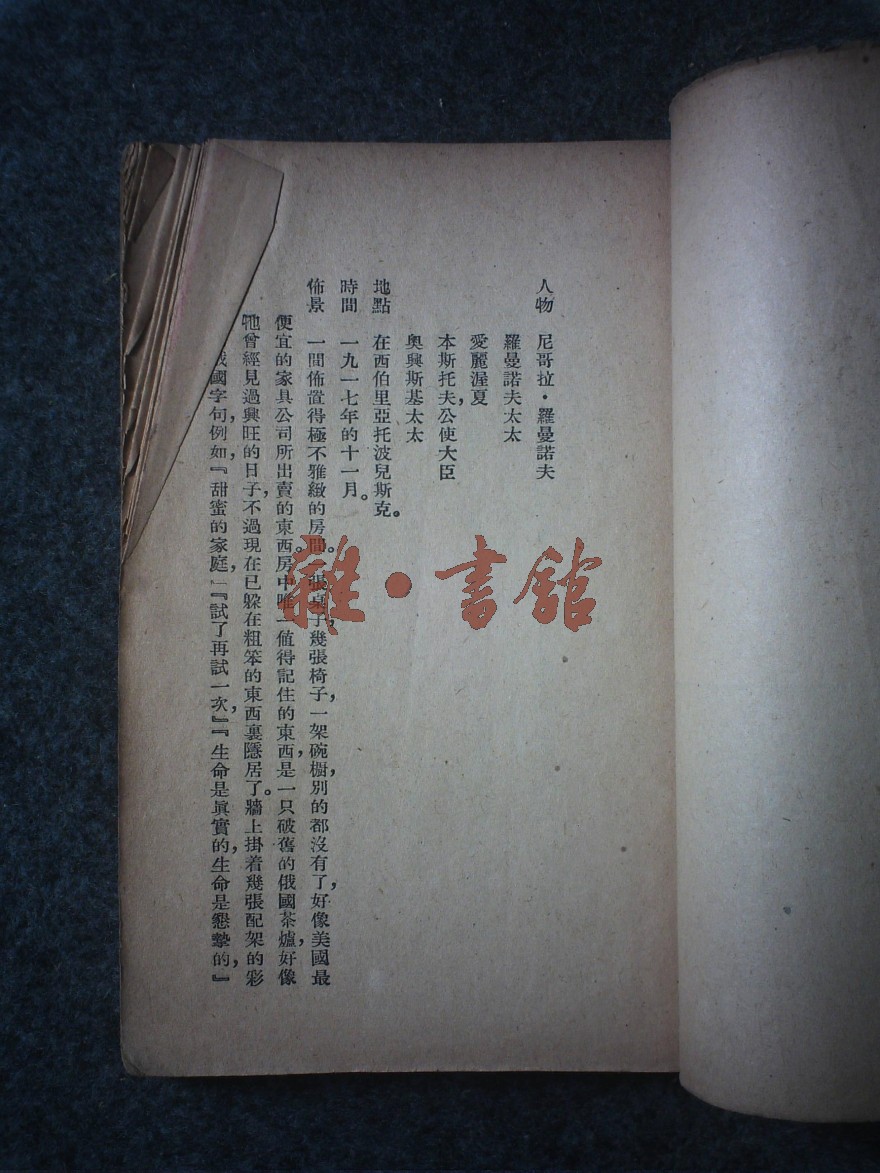 人物　尼哥拉・羅曼諾夫
羅曼諾夫太太
愛麗渥夏
本斯托夫，公使大臣
奧興斯基太太
地點　在西伯里亞托波兒斯克。
時間　一九一七年的十一月。
佈景　一間佈置得極不雅緻的房間。一張桌子，幾張椅子，一架碗櫥，別的都沒有了，好像美國最
便宜的家具公司所出賣的東西。房中唯一値得記住的東西，是一只破舊的俄國茶爐，好像
牠曾經見過興旺的日子，不過現在已躲在粗笨的東西裏隱居了。牆上掛着幾張配架的彩
國字句，例如，『甜蜜的家庭，』『試了再試一次，』『生命是眞實的，生命是懇摯的，』
雜・書館